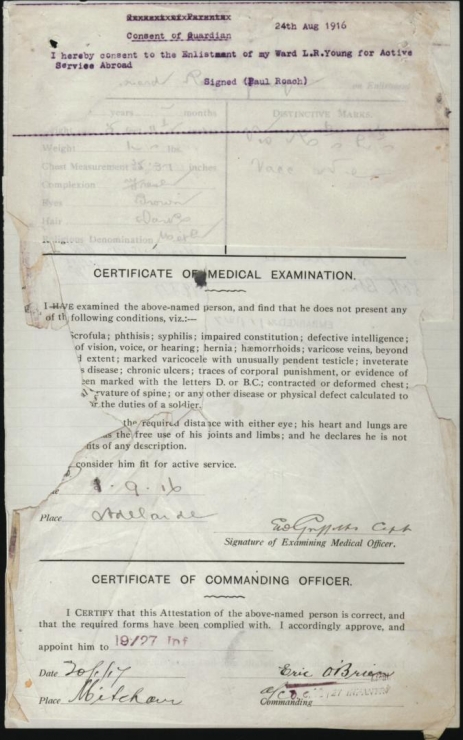 Consent of Parents
Consent of Guardian
24th Aug 1916
I hereby consent to the Enlistment of my Ward L.R.Young for Active
Service Abroad
Signed (Paul Roach)
on Enlistment
years months
DISTINCTIVE MARKS.
Weight lbs.
Chest Measurement inches
Complexion
Eyes Brown
Hair Dark
Religious Denomination Meth
CERTIFICATE OF MEDICAL EXAMINATION.
I HAVE examined the above-named person, and find that he does not present any
of the following conditions, viz.:—
Scrofula; phthisis; syphilis; impaired constitution; defective intelligence;
of vision, voice, or hearing; hernia; hæmorrhoids; varicose veins, beyond
extent; marked varicocele with unusually pendent testicle; inveterate
s disease; chronic ulcers; traces of corporal punishment, or evidence of
een marked with the letters D. or B.C.; contracted or deformed chest;
rvature of spine; or any other disease or physical defect calculated to
or the duties of a soldier.
the required distance with either eye; his heart and lungs are
as the free use of his joints and limbs; and he declares he is not
its of any description.
consider him fit for active service.
1.9.16
Place Adelaide
Griffiths Capt
Signature of Examining Medical Officer.
CERTIFICATE OF COMMANDING OFFICER.
I CERTIFY that this Attestation of the above-named person is correct, and
that the required forms have been complied with. I accordingly approve, and
appoint him to 19/27 Inf
Date 20/1/17
Eric O'Brien
Place Mitcham
Commanding